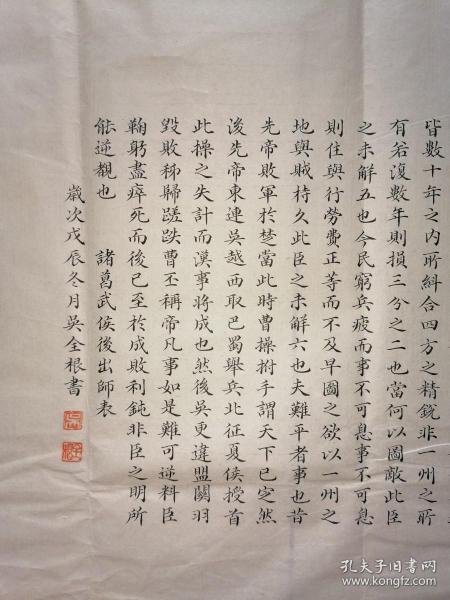 皆數十年之内所糾合四方之精銳非一州之所
有若復數年則損三分之二也當何以圖敵此臣
之未解五也今民窮兵疲而事不可息事不可息
則住與行勞費正等而不及早圖之欲以一州之
地與賊持久此臣之未解六也夫難平者事也昔
先帝敗軍於楚當此時曹操拊手謂天下已定然
後先帝東連吳越西取巴蜀舉兵北征夏侯授首
此操之失計而漢事將成也然後吳更違盟關羽
毀敗秭歸蹉跌曹丕稱帝凡事如是難可逆料臣
鞠躬盡瘁死而後已至於成敗利鈍非臣之明所
能逆覩也 諸葛武侯後出師表
歲次戊辰冬月吳全根書
孔夫子旧书网
www.kongfz.com